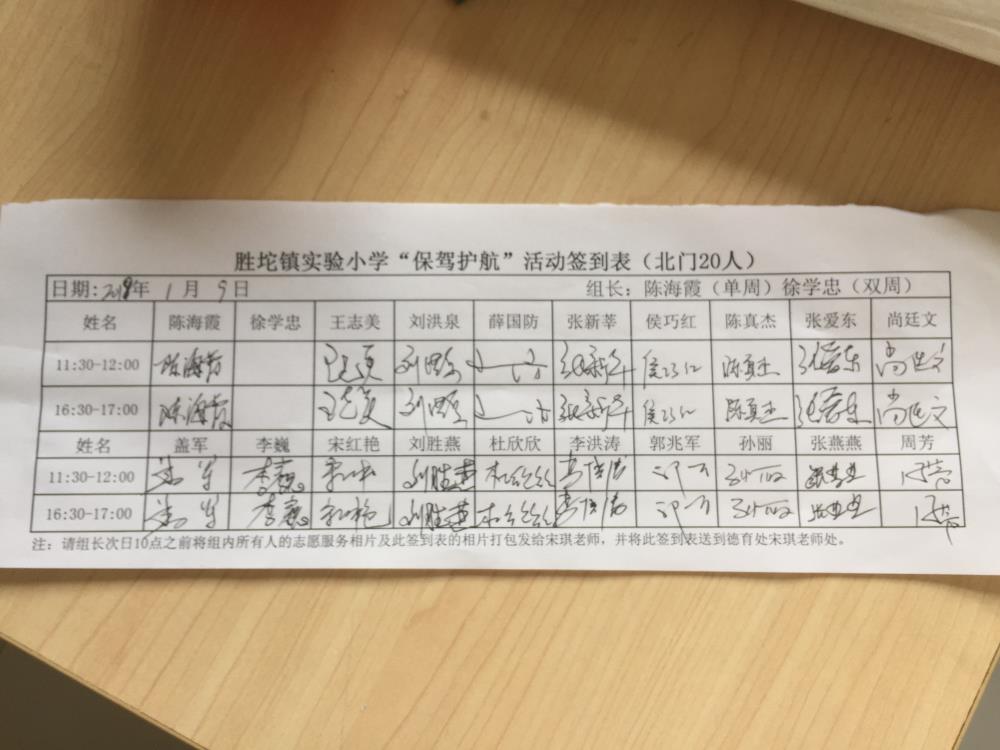 胜坨镇实验小学“保驾护航”活动签到表（北门20人）
日期:2019年 1月 9日 组长：陈海霞（单周）徐学忠（双周）
姓名 陈海霞 徐学忠 王志美 刘洪泉 薛国防 张新莘 侯巧红 陈真杰 张爱东 尚廷文
11:30-12:00 陈海霞 刘洪泉 张新莘 侯巧红 陈真杰 张爱东 尚廷文
16:30-17:00 陈海霞 刘洪泉 张新莘 侯巧红 陈真杰 张爱东 尚廷文
姓名 盖军 李巍 宋红艳 刘胜燕 杜欣欣 李洪涛 郭兆军 孙丽 张燕燕 周芳
11:30-12:00 盖军 李巍 刘胜燕 孙丽 周芳
16:30-17:00 盖军 李巍 宋红艳 刘胜燕 孙丽
注：请组长次日10点之前将组内所有人的志愿服务相片及此签到表的相片打包发给宋琪老师，并将此签到表送到德育处宋琪老师处。